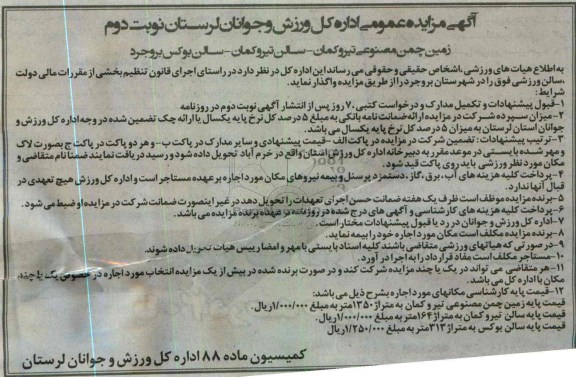 آگهی مزایده عمومی اداره کل ورزش و جوانان لرستان نوبت دوم
زمین چمن مصنوعی تیر و کمان - سالن تیر و کمان - سالن بوکس بروجرد
به اطلاع هیات های ورزشی، اشخاص حقیقی و حقوقی می رساند این اداره کل در نظر دارد در راستای اجرای قانون تنظیم بخشی از مقررات مالی دولت
، سالن ورزشی فوق را در شهرستان بروجرد را از طریق مزایده واگذار نماید.
شرایط:
۱- قبول پیشنهادات و تکمیل مدارک و درخواست کتبی ۷۰ روز پس از انتشار آگهی نوبت دوم در روزنامه
۲- میزان سپرده شرکت در مزایده ارائه ضمانت نامه بانکی به مبلغ ۵ درصد کل نرخ پایه یکسال یا ارائه چک تضمین شده در وجه اداره کل ورزش و
جوانان استان لرستان به میزان ۵ درصد کل نرخ پایه یکسال می باشد.
۳- ترتیب پیشنهادات: تضمین شرکت در مزایده در پاکت الف - قیمت پیشنهادی و سایر مدارک در پاکت ب - و هر دو پاکت در پاکت ج بصورت لاک و
مهر شده بایستی در موعد مقرر به دبیرخانه اداره کل ورزش استان واقع در خرم آباد تحویل داده شود و رسید دریافت نمایند ضمنا نام متقاضی و
مکان مورد نظر ورزشی باید روی پاکت قید شود.
۴- پرداخت کلیه هزینه های آب، برق، گاز، دستمزد پرسنل و بیمه نیروهای مکان مورد اجاره بر عهده مستاجر است و اداره کل ورزش هیچ تعهدی در
قبال آنها ندارد.
۵- برنده مزایده موظف است ظرف یک هفته ضمانت حسن اجرای تعهدات را تحویل دهد در غیر اینصورت ضمانت شرکت در مزایده او ضبط می شود.
۶- پرداخت کلیه هزینه های کارشناسی و آگهی های درج شده در روزنامه بر عهده برنده مزایده می باشد.
۷- اداره کل ورزش و جوانان در رد یا قبول پیشنهادات مختار است.
۸- برنده مزایده مکلف است مکان مورد اجاره خود را بیمه نماید.
۹- در صورتی که هیاتهای ورزشی متقاضی باشند کلیه اسناد بایستی با مهر و امضا رییس هیات تحویل داده شوند
۱۰- مستاجر مکلف است مفاد قرارداد را به اجرا در آورد.
۱۱- هر متقاضی می تواند در یک یا چند مزایده شرکت کند و در صورت برنده شده در بیش از یک مزایده انتخاب مورد اجاره در خصوص یک یا چند
مکان با اداره کل می باشد.
۱۲- قیمت پایه کارشناسی مکانهای مورد اجاره بشرح ذیل می باشد:
قیمت پایه زمین چمن مصنوعی تیر و کمان به متراژ ۱۳۵۰ متر به مبلغ ۱/۰۰۰/۰۰۰ ریال.
قیمت پایه سالن تیر و کمان به متراژ ۱۶۴ متر به مبلغ ۱/۰۰۰/۰۰۰ ریال.
قیمت پایه سالن بوکس به متراژ ۳۱۳ متر به مبلغ ۱/۲۵۰/۰۰۰ ریال
کمیسیون ماده ۸۸ اداره کل ورزش و جوانان لرستان